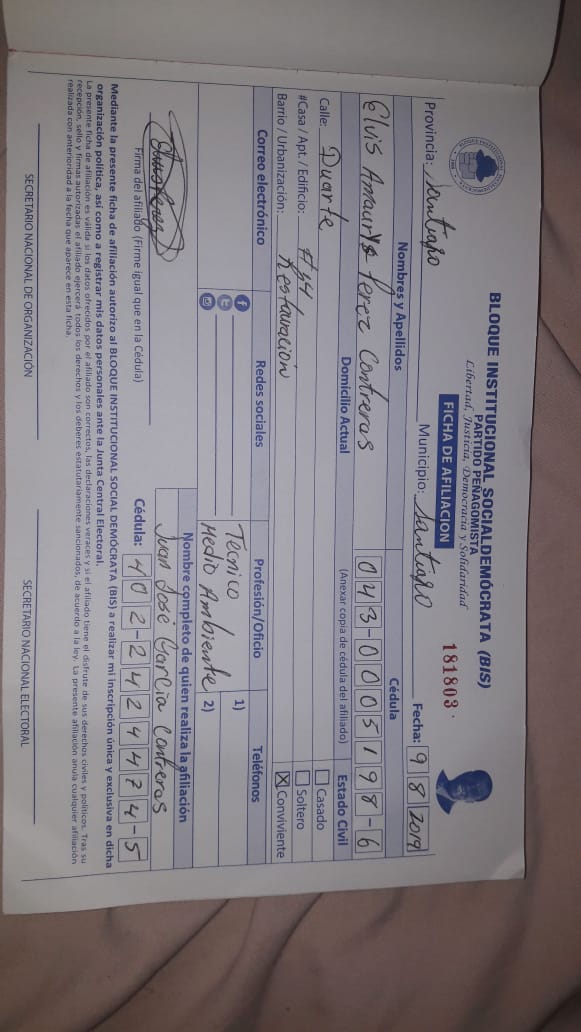 BLOQUE INSTITUCIONAL SOCIALDEMÓCRATA (BIS)
PARTIDO PEÑAGOMISTA
Libertad, Justicia, Democracia y Solidaridad
FICHA DE AFILIACION
181803
Provincia: Santiago Municipio: Santiago Fecha: 9 8 2019
Nombres y Apellidos Cédula
Elvis Amaurys Perez Contreras 043-0005198-6
Domicilio Actual (Anexar copia de cédula del afiliado) Estado Civil
Calle: Duarte Casado
#Casa / Apt. / Edificio: #44 Soltero
Barrio / Urbanización: Restauración X Conviviente
Correo electrónico Redes sociales Profesión/Oficio Teléfonos
Técnico 1)
Medio Ambiente 2)
Nombre completo de quien realiza la afiliación
Juan José García Contreras
Firma del afiliado (Firme igual que en la Cédula) Cédula: 402-2424474-5
Mediante la presente ficha de afiliación autorizo al BLOQUE INSTITUCIONAL SOCIAL DEMÓCRATA (BIS) a realizar mi inscripción única y exclusiva en dicha
organización política, así como a registrar mis datos personales ante la Junta Central Electoral.
La presente ficha de afiliación es válida si los datos ofrecidos por el afiliado son correctos, las declaraciones veraces y si el afiliado tiene el disfrute de sus derechos civiles y políticos. Tras su
recepción, sello y firmas autorizadas el afiliado ejercerá todos los derechos y los deberes estatutariamente sancionados, de acuerdo a la ley. La presente afiliación anula cualquier afiliación
realizada con anterioridad a la fecha que aparece en esta ficha.
SECRETARIO NACIONAL DE ORGANIZACIÓN SECRETARIO NACIONAL ELECTORAL